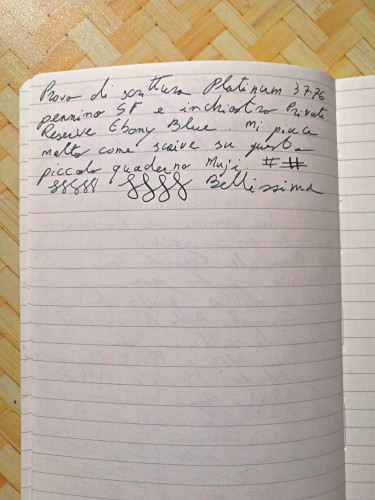 Prova di scrittura Platinum 3776
pennino SF e inchiostro Private
Reserve Ebony Blue. Mi piace
molto come scrive su questo
piccolo quaderno Muji. # #
§§§§§ §§§§ Bellissima